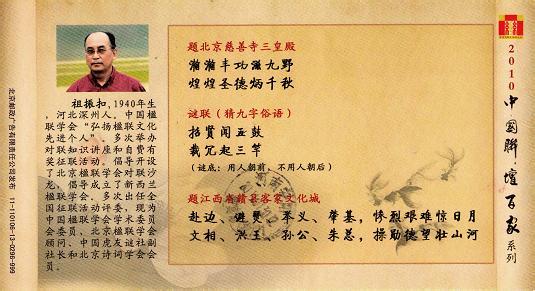 祖振扣,1940年生,河北深州人。中国楹
联学会“弘扬楹联文化
先进个人”。多次举办
对联知识讲座和自费有
奖征联活动。倡导开设
了尼克松高中对联对沙
龙,倡导成立了新西兰
楹联学会。多次出任全
国征联活动评委。现为
中国楹联学会学术委员
会委员、北京楹联学会
顾问、中国虎友谜社副
社长和北京诗词学会会
员。
题北京慈善寺三皇殿
瀚瀚丰功弥九野
煌煌圣德炳千秋
谜联(猜九字俗语)
招贤闻五鼓
裁冗起三竿
(谜底:用人朝前,不用人朝后)
题江西省赣县客家文化城
赴边、避燹、平义、肇基,惨烈艰难惊日月
文相、洪王、孙公、朱总,操勋德望壮山河
2010中国联坛百家系列
北京邮政广告有限责任公司发布 11-110106-13-0296-999